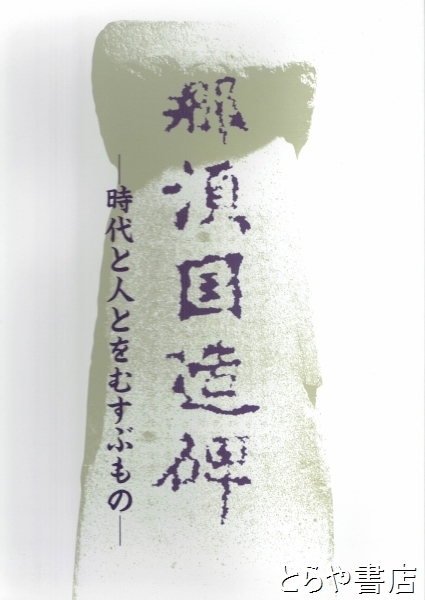 那須国造碑
―時代と人とをむすぶもの―
とらや書店